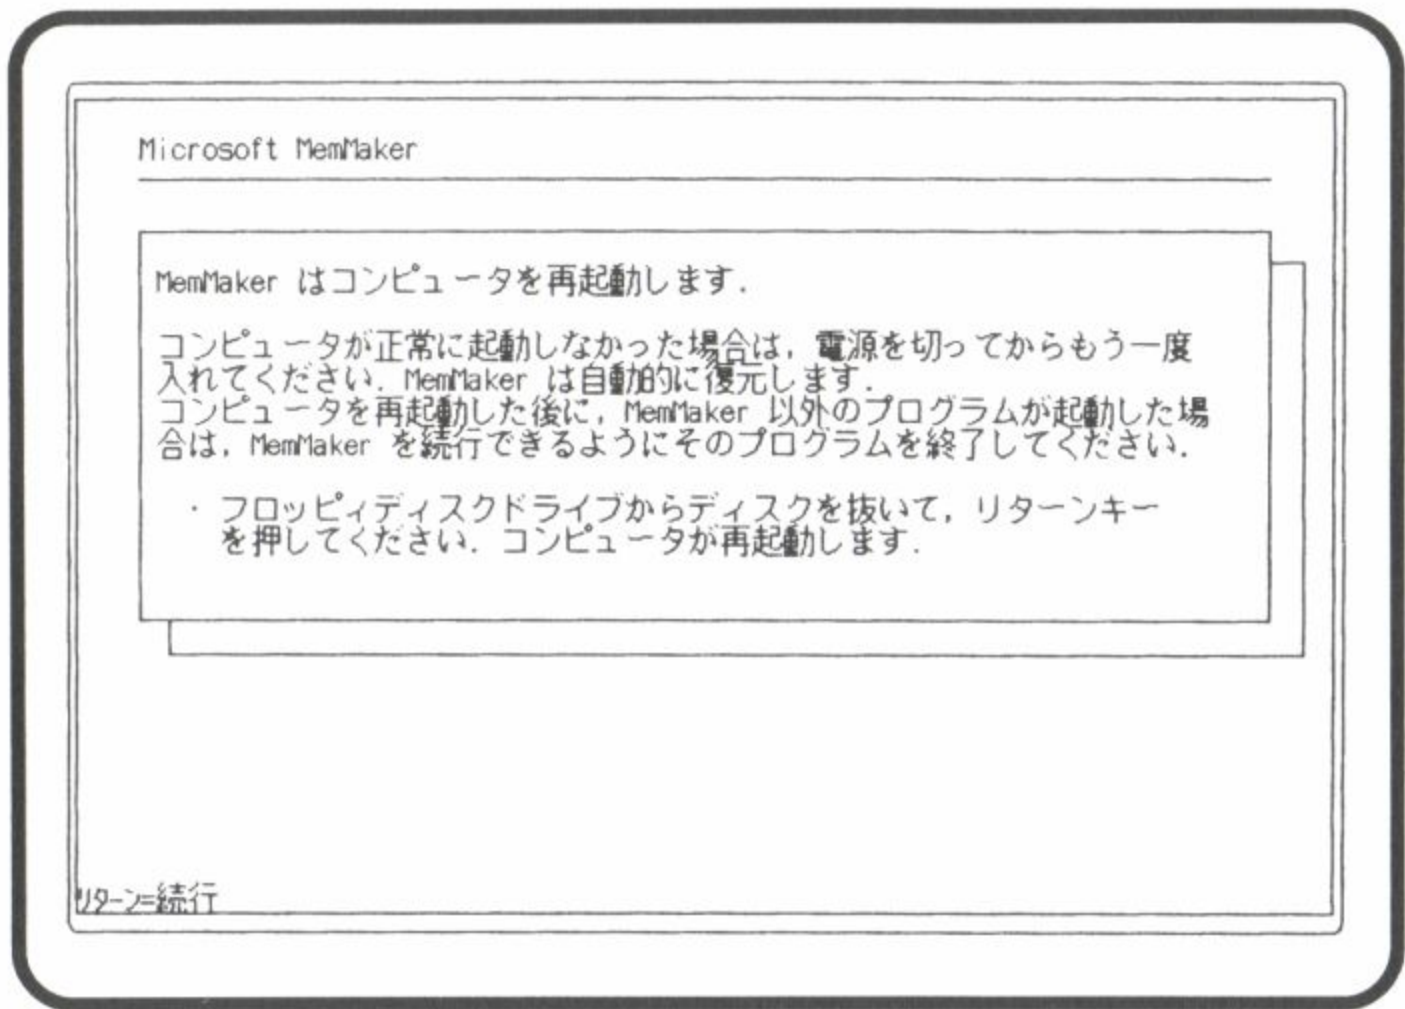 Microsoft MemMaker
MemMaker はコンピュータを再起動します.
コンピュータが正常に起動しなかった場合は, 電源を切ってからもう一度
入れてください. MemMaker は自動的に復元します.
コンピュータを再起動した後に, MemMaker 以外のプログラムが起動した場
合は, MemMaker を続行できるようにそのプログラムを終了してください.
・ フロッピィディスクドライブからディスクを抜いて, リターンキー
を押してください. コンピュータが再起動します.
ﾘﾀｰﾝ=続行